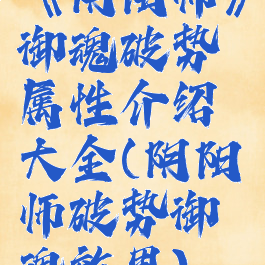 《阴阳师》
御魂破势
属性介绍
大全(阴阳
师破势御
魂效果)